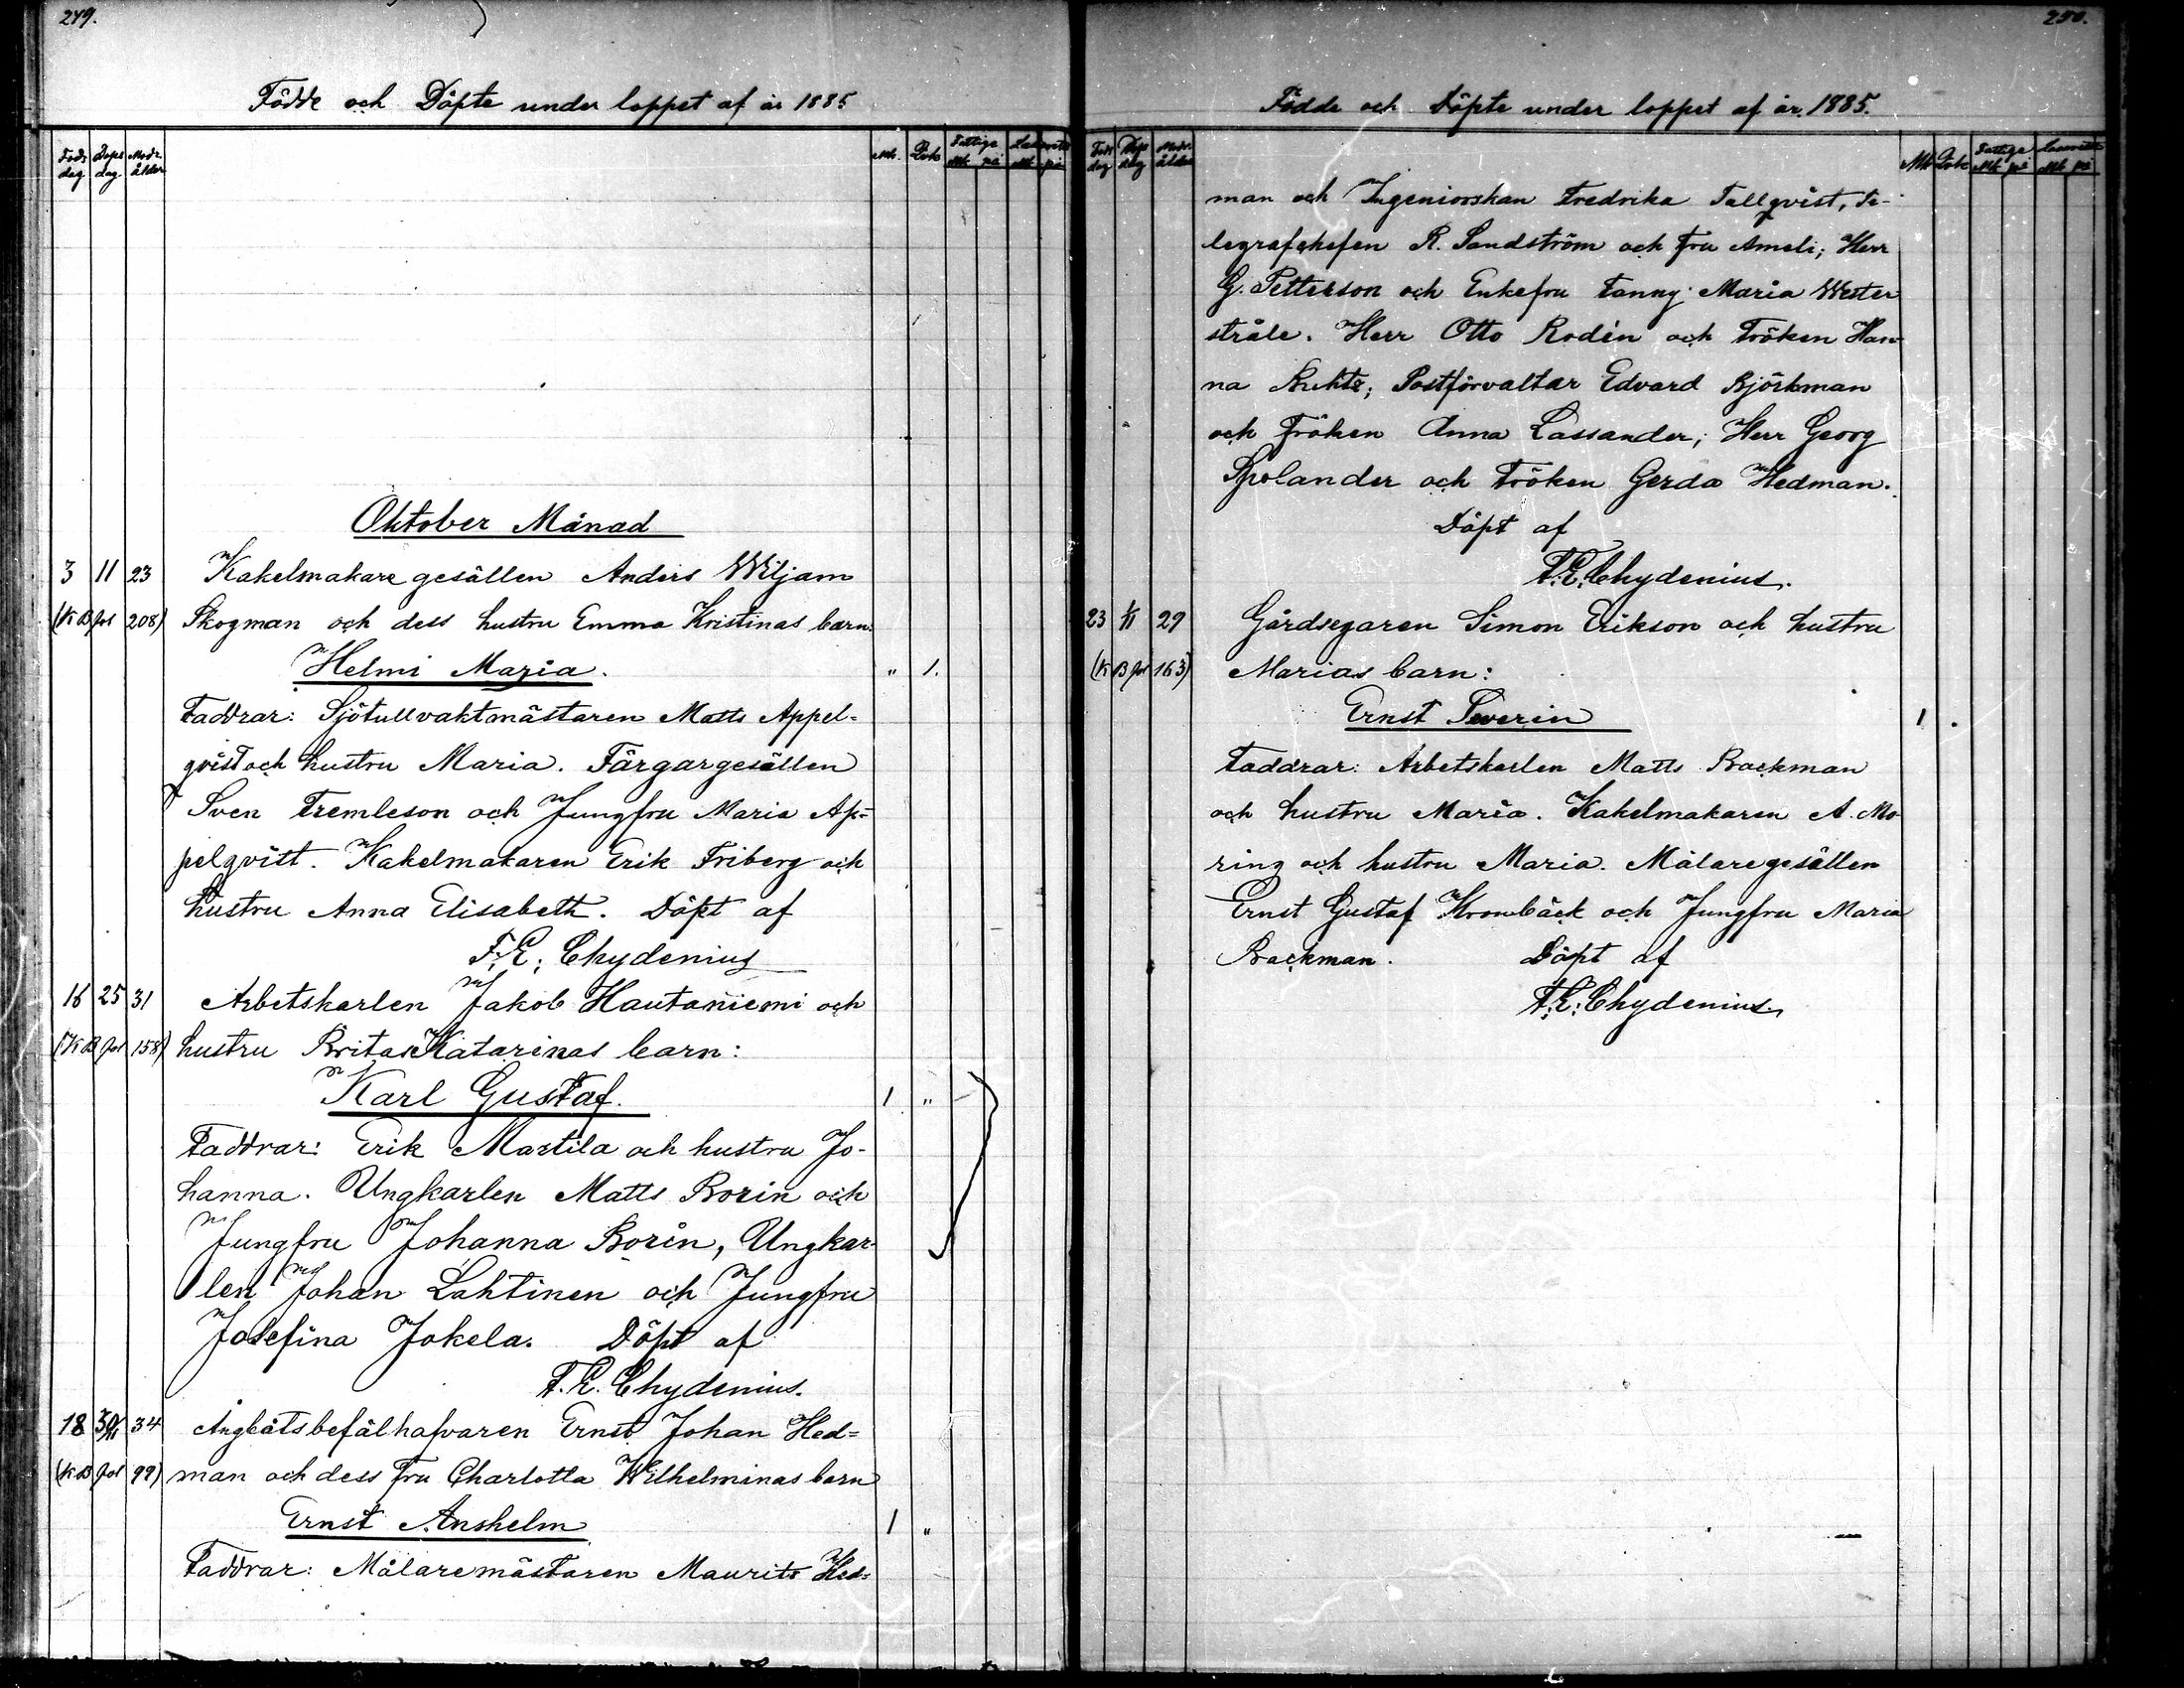 249.
Födde och Döpte under loppet af år 1885
Föds dag Dops dag Modr. ålder
Mk. Qvk Fattige Mk pi Lasarette Mk pi
Oktober Månad
3 11 23 Kakelmakaregesällen Anders Wiljam
(K B pol 208) Skogman och dess hustru Emma Kristinas barn:
Helmi Maria. " 1.
Faddrar: Sjötullvaktmästaren Matts Appel-
qvist och hustru Maria. Färgargesällen
Sven Tremleson och Jungfru Maria Ap-
pelqvist. Kakelmakaren Erik Friberg och
hustru Anna Elisabeth. Döpt af
F. E. Chydenius
16 25 31 Arbetskarlen Jakob Hautaniemi och
(K B pol 158) hustru Britas Katarinas barn:
Karl Gustaf. 1 "
Faddrar: Erik Martila och hustru Jo-
hanna. Ungkarlen Matts Borin och
Jungfru Johanna Borin, Ungkar-
len Johan Lahtinen och Jungfru
Josefina Jokela. Döpt af
F. E. Chydenius.
18 34 Ångbåtsbefälhafvaren Ernst Johan Hed-
(K B pol 99) man och dess Fru Charlotta Wilhelminas barn
Ernst Anshelm 1 "
Faddrar: Målaremästaren Maurits Hed-
250.
Födde och Döpte under loppet af år. 1885.
Föds dag Dops dag Modr. ålder
Mk Qvk Fattige Mk pi Lasarette Mk pi
man och Ingeniorskan Fredrika Tallqvist, Te-
legrafchefen R. Sandström och Fru Ameli; Herr
G. Petterson och Enkefru Fanny Maria Wester
stråle. Herr Otto Rodén och Fröken Han-
na; Postförvaltar Edvard Björkman
och Fröken Anna Lassander; Herr Georg
Spolander och Fröken Gerda Hedman.
Döpt af
F. E. Chydenius.
23 1/11 29 Gårdsegaren Simon Erikson och hustru
(K B pol 163) Marias barn:
Ernst Severin 1 .
Faddrar: Arbetskarlen Matts Backman
och hustru Maria. Kakelmakaren A. Mo-
ring och hustru Maria. Målaregesällen
Ernst Gustaf Kronbäck och Jungfru Maria
Backman. Döpt af
F. E. Chydenius.